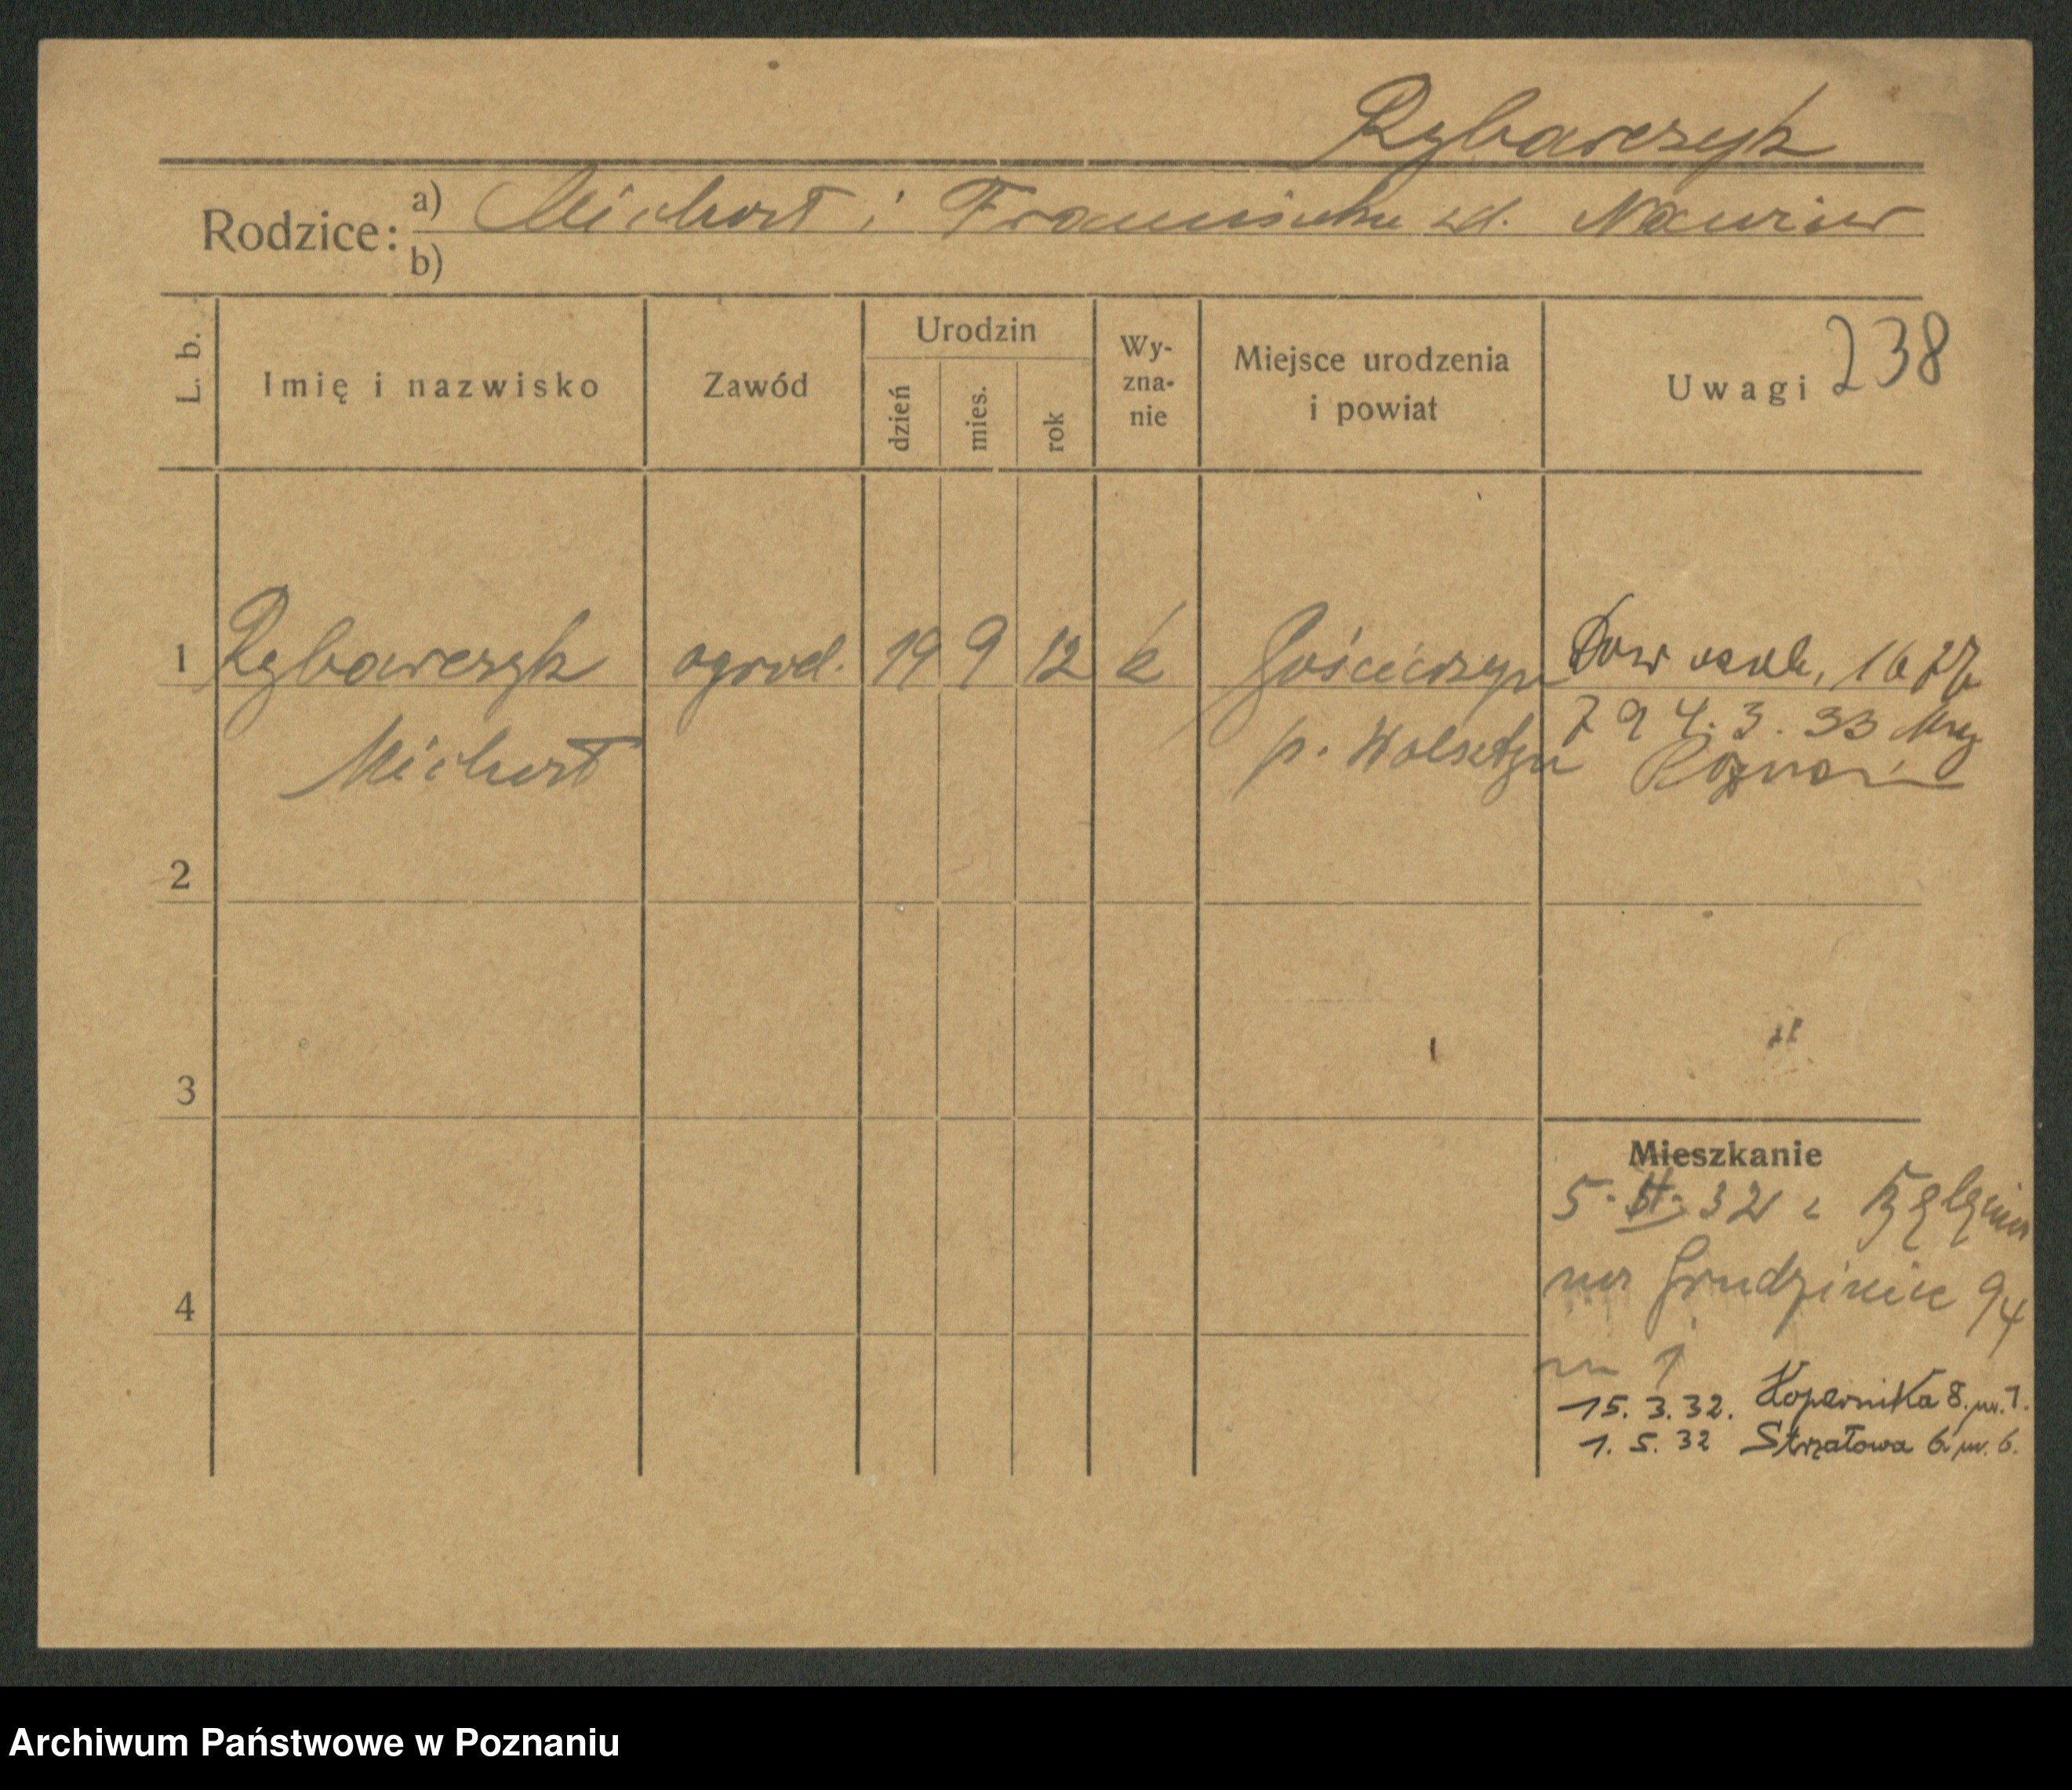 Rybarczyk
Rodzice: a) Michał i Franciszka zd. Nawrier
b)
L. b. Imię i nazwisko Zawód Urodzin dzień mies. rok Wy-zna-nie Miejsce urodzenia i powiat Uwagi 238
1 Rybarczyk ogrod. 19 9 12 k Gościeszyn Dow osob, 1677
Michał p. Wolsztyn z 4.3.33 Mag
Poznań
2
3
Mieszkanie
5. 32 z
na Grudzieniec 94
4
m 1
15. 3. 32. Kopernika 8. m. 7.
1. 5. 32 Strzałowa 6 m. 6.
Archiwum Państwowe w Poznaniu